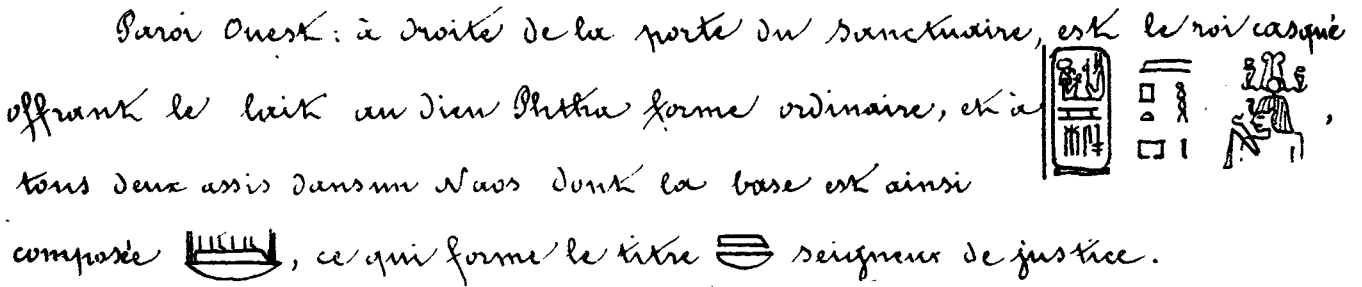 Paroi Ouest: à droite de la porte du sanctuaire, est le roi casqué
offrant le lait au dieu Phtha forme ordinaire, et à ,
tous deux assis dans un Naos dont la base est ainsi
composée , ce qui forme le titre seigneur de justice.